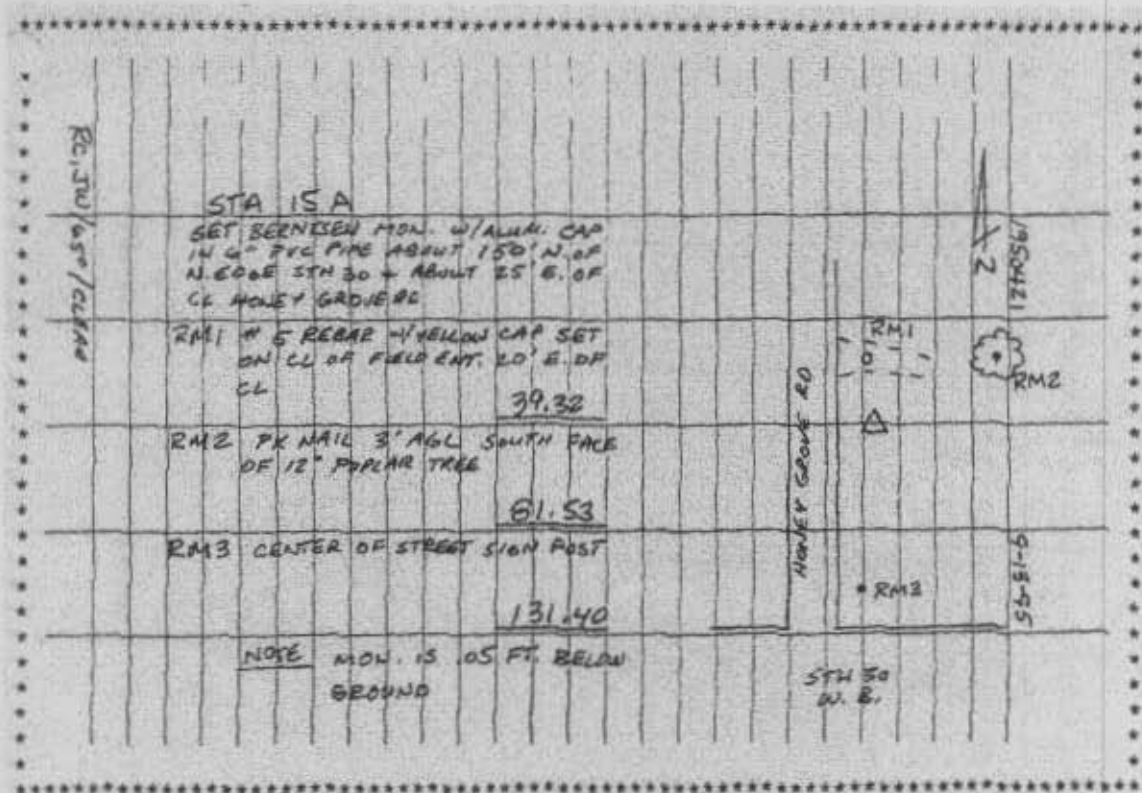 STA 15 A
SET BERNTSEN MON. W/ALUM. CAP
IN 6" PVC PIPE ABOUT 150' N. OF
N. EDGE STH 30 + ABOUT 25' E. OF
CL HONEY GROVE RD
RM1 # 5 REBAR W/YELLOW CAP SET
ON CL OF FIELD ENT. 20' E. OF
CL
39.32
RM2 PK NAIL 3' AGL SOUTH FACE
OF 12" POPLAR TREE
81.53
RM3 CENTER OF STREET SIGN POST
131.40
NOTE MON. IS .05 FT. BELOW
GROUND
RC, JW/65°/CLEAR
N
RM1
RM2
HONEY GROVE RD
RM3
STH 30
W. B.